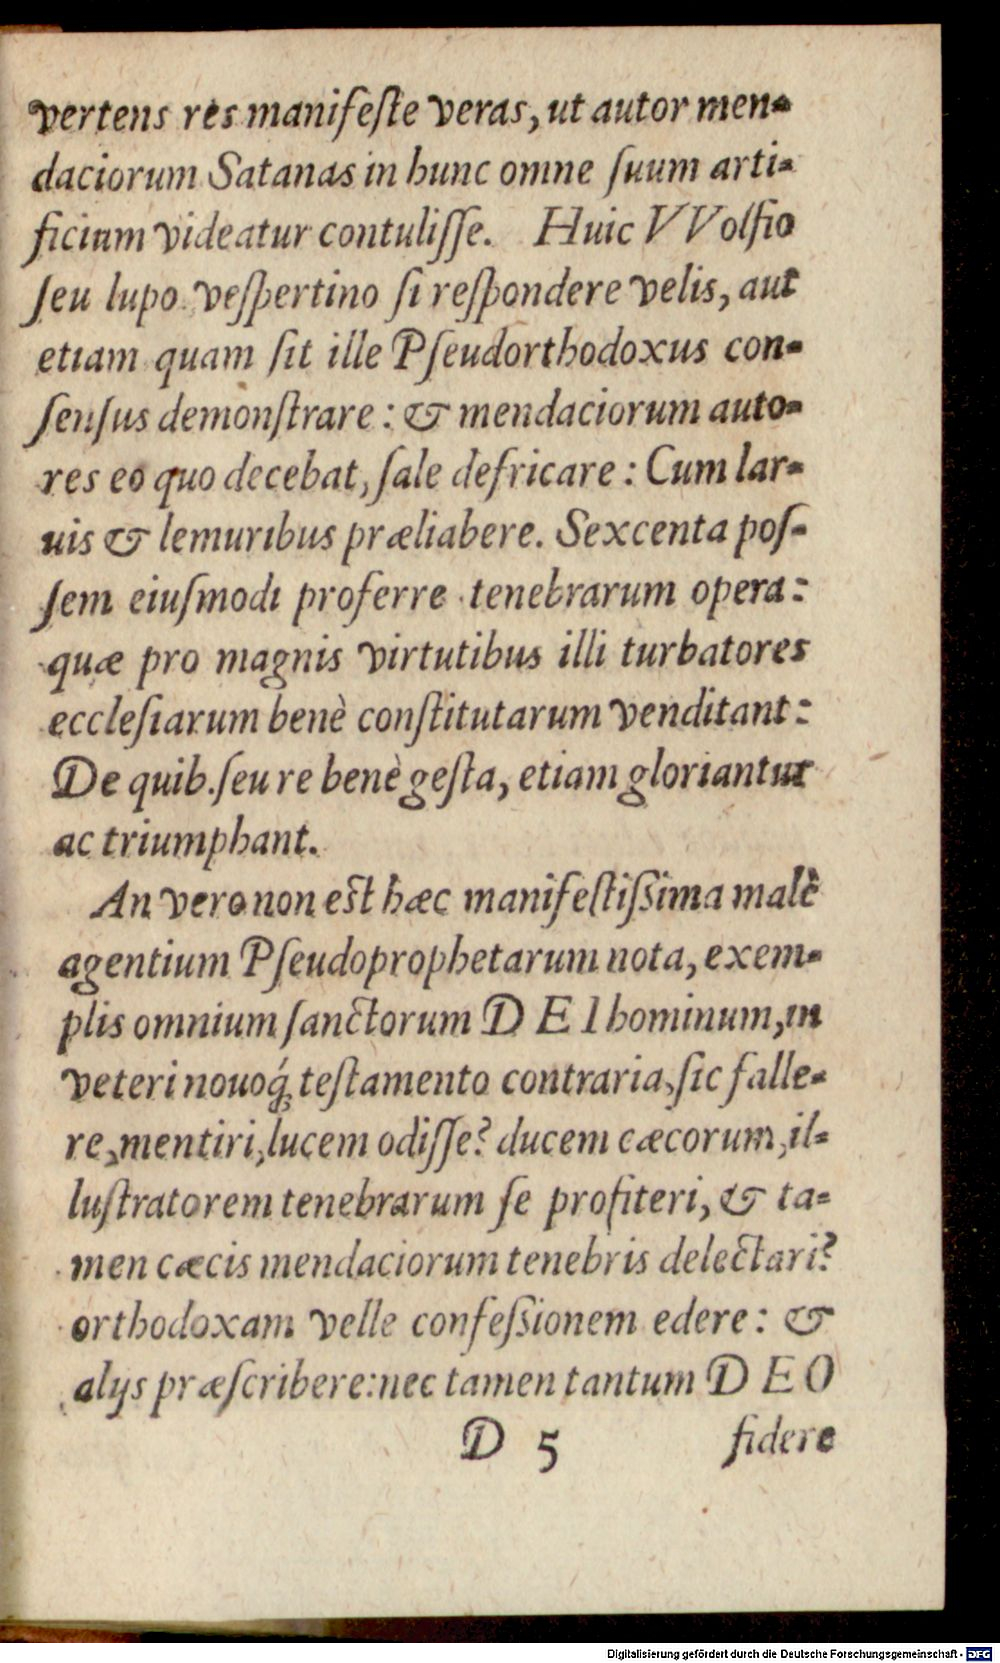 vertens res manifeſte veras, ut autor men-
daciorum Satanas in hunc omne ſuum arti-
ficium videatur contuliſſe. Huic VVolfio
ſeu lupo veſpertino ſi reſpondere velis, aut
etiam quam ſit ille Pſeudorthodoxus con-
ſenſus demonſtrare: & mendaciorum auto-
res eo quo decebat, ſale defricare: Cum lar-
uis & lemuribus præliabere. Sexcenta poſ-
ſem eiuſmodi proferre tenebrarum opera:
quæ pro magnis virtutibus illi turbatores
eccleſiarum benè conſtitutarum venditant:
De quib. ſeu re benè geſta, etiam gloriantur
ac triumphant.
An vero non est hæc manifeſtiſsima malè
agentium Pſeudoprophetarum nota, exem-
plis omnium ſanctorum DEI hominum, in
veteri nouoq́; teſtamento contraria, ſic falle-
re, mentiri, lucem odiſſe? ducem cæcorum, il-
luſtratorem tenebrarum ſe profiteri, & ta-
men cæcis mendaciorum tenebris delectari?
orthodoxam velle confeſsionem edere: &
alijs præſcribere: nec tamen tantum DEO
D 5 fidere
Digitalisierung gefördert durch die Deutsche Forschungsgemeinschaft - DFG